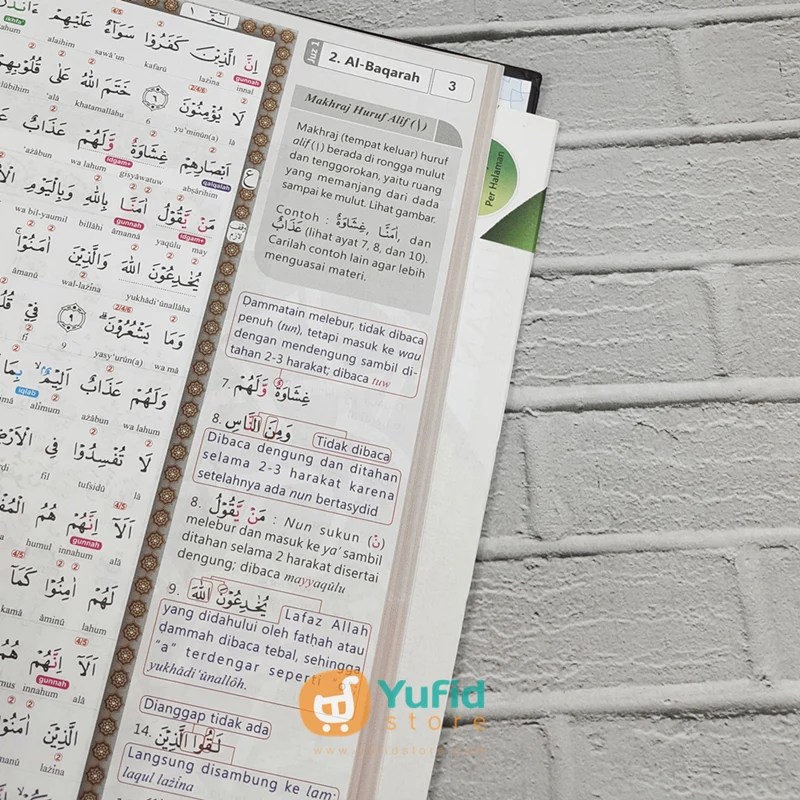 الۤمّۤ ١
Juz 1
2. Al-Baqarah
3
Makhraj Huruf Alif (ا)
Makhraj (tempat keluar) huruf
alif (ا) berada di rongga mulut
dan tenggorokan, yaitu ruang
yang memanjang dari dada
sampai ke mulut. Lihat gambar.
Contoh : غِشَاوَةٌ, اٰمَنَّا, dan
عَذَابٌ (lihat ayat 7, 8, dan 10).
Carilah contoh lain agar lebih
menguasai materi.
Dammatain melebur, tidak dibaca
penuh (tun), tetapi masuk ke wau
dengan mendengung sambil di-
tahan 2-3 harakat; dibaca tuw
7. غِشَاوَةٌ وَّلَهُمْ
8. وَمِنَ النَّاسِ
Tidak dibaca
Dibaca dengung dan ditahan
selama 2-3 harakat karena
setelahnya ada nun bertasydid
8. مَنْ يَّقُوْلُ : Nun sukun (نْ)
melebur dan masuk ke ya' sambil
ditahan selama 2 harakat disertai
dengung; dibaca mayyaqūlu
9. يُخٰدِعُوْنَ اللّٰهَ
Lafaz Allah
yang didahului oleh fatḥah atau
ḍammah dibaca tebal, sehingga
"a" terdengar seperti "o";
yukhādi'ūnallôh.
Dianggap tidak ada
14. لَقُوا الَّذِيْنَ
Langsung disambung ke lam:
laqul lażīna
اِنَّ الَّذِيْنَ كَفَرُوْا سَوَاۤءٌ عَلَيْهِمْ
innal lażīna kafarū sawā'un alaihim
لَا يُؤْمِنُوْنَ ٦ خَتَمَ اللّٰهُ عَلٰى قُلُوْبِهِمْ
lā yu'minūn(a) 6 khatamallāhu 'alā
اَبْصَارِهِمْ غِشَاوَةٌ وَّلَهُمْ عَذَابٌ
abṣārihim gisyāwatuw wa lahum 'ażābun
مَنْ يَّقُوْلُ اٰمَنَّا بِاللّٰهِ وَبِالْيَوْمِ
may yaqūlu āmannā billāhi wa bil-yaumil
يُخٰدِعُوْنَ اللّٰهَ وَالَّذِيْنَ اٰمَنُوْا
yukhādi'ūnallāha wal-lażīna āmanū
وَمَا يَشْعُرُوْنَ ٩ فِيْ
wa mā yasy'urūn(a) 9 fī
وَلَهُمْ عَذَابٌ اَلِيْمٌ بِمَا
wa lahum ażābun alīmum
لَا تُفْسِدُوْا فِى الْاَرْضِ
lā tufsidū fil
اَلَآ اِنَّهُمْ هُمُ
alā innahum humul
لَهُمْ اٰمِنُوْا كَمَآ
lahum āminū kamā
اَلَآ اِنَّهُمْ هُمُ
alā innahum
الَّذِيْنَ اٰمَنُوْا
lażīna
Per Halaman
Yufid
store